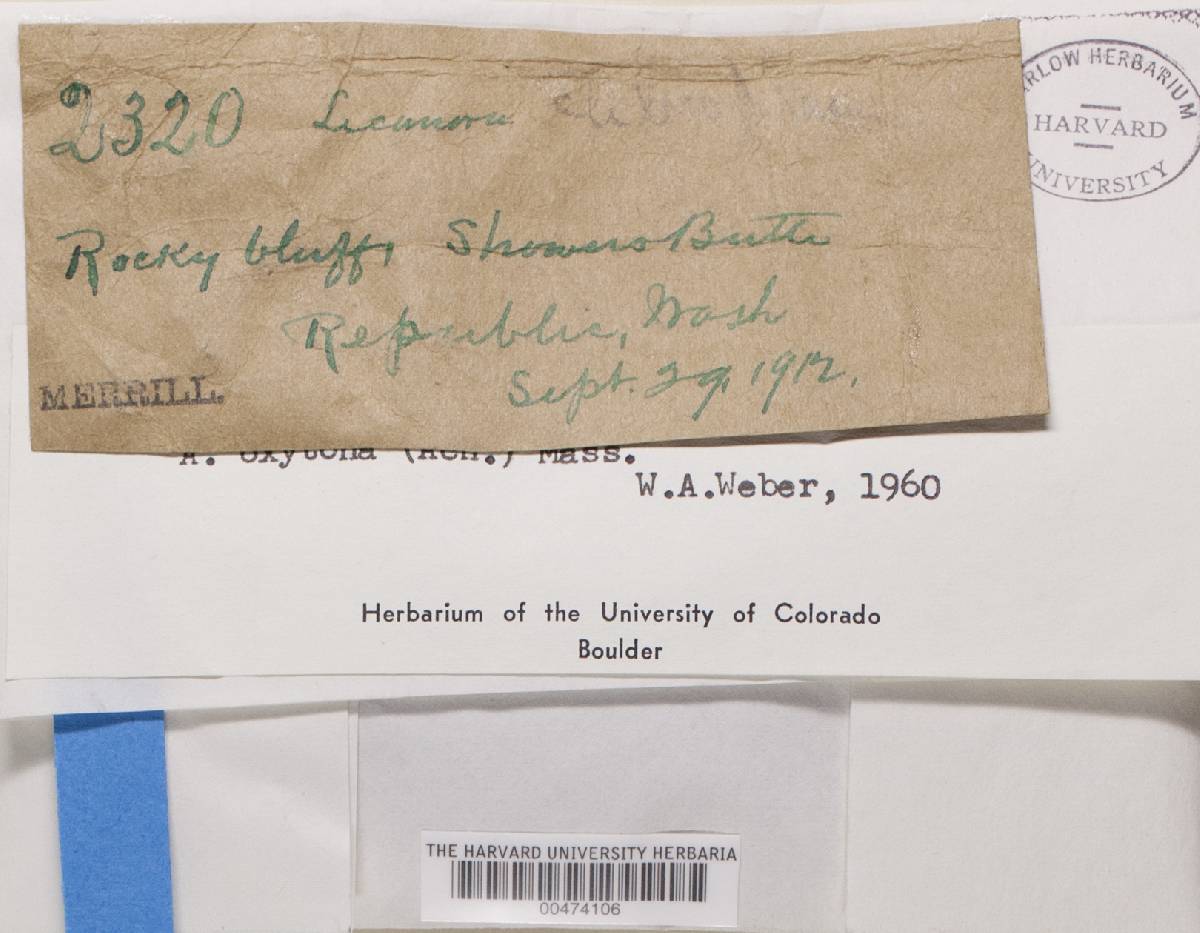 2320 Lecanora
Rocky bluff, Showers Butte
Republic, Wash
Sept. 29, 1912.
MERRILL.
RLOW HERBARIUM
HARVARD
UNIVERSITY
A. oxytona (Ach.) Mass.
W.A.Weber, 1960
Herbarium of the University of Colorado
Boulder
THE HARVARD UNIVERSITY HERBARIA
00474106